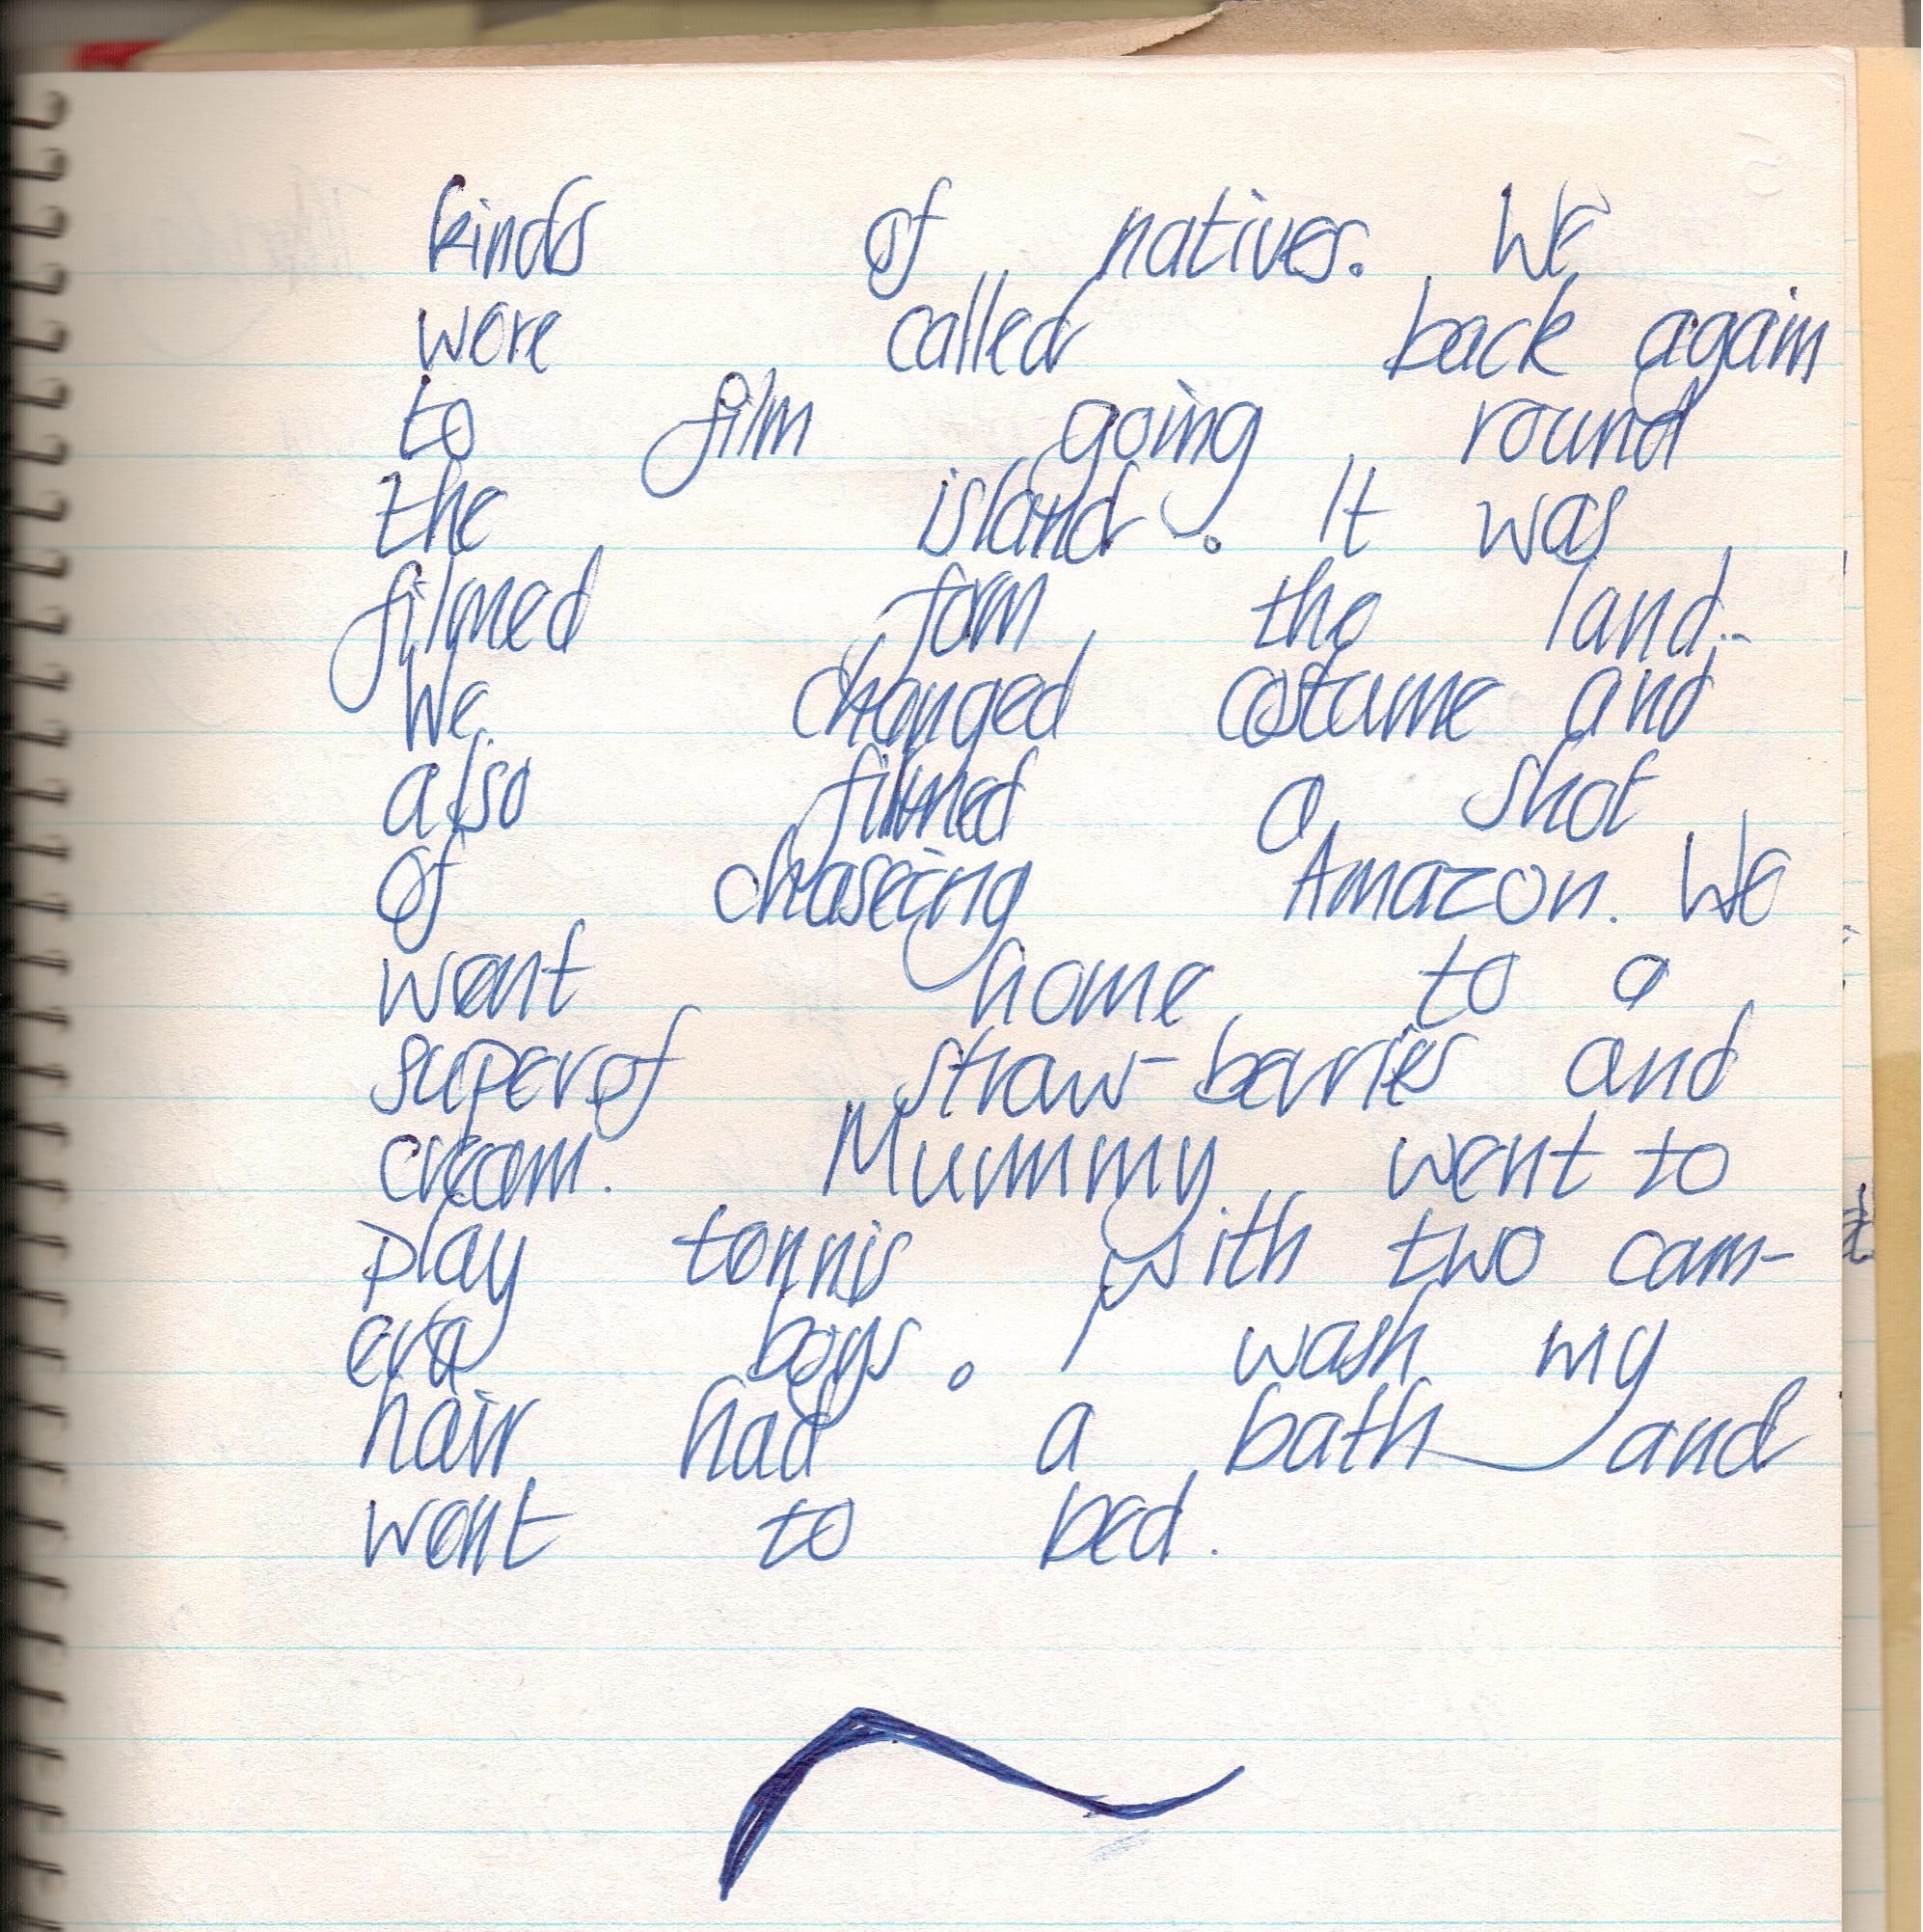 kinds of natives. We
were called back again
to film going round
the island. It was
filmed form the land.
We changed costume and
also filmed a shot
of chaseing Amazon. We
went home to a
super of straw-barries and
cream. Mummy went to
play tennis with two cam-
era boys. I wash my
hair had a bath and
went to bed.